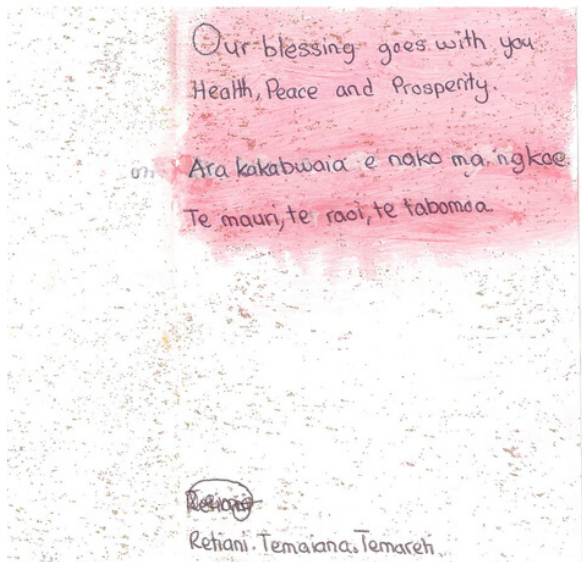 Our blessing goes with you
Health, Peace and Prosperity.
Ara kakabwaia e nako ma ngkoe
Te mauri, te raoi, te tabomoa.
Retiani. Temaiana. Temareti